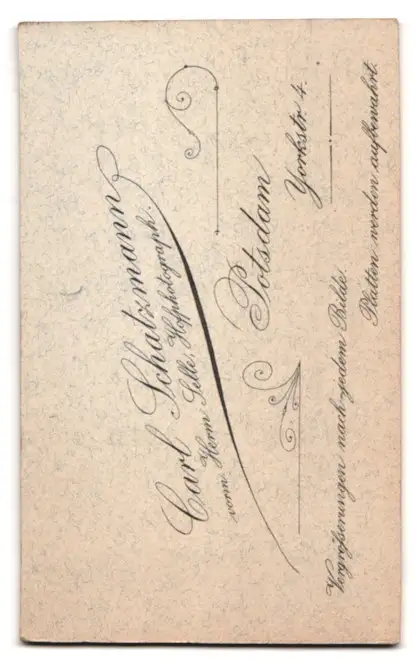 Carl Schatzmann
vorm. Herm. Selle, Hofphotograph.
Potsdam
Yorkstr. 4.
Vergrößerungen nach jedem Bilde.
Platten werden aufbewahrt.